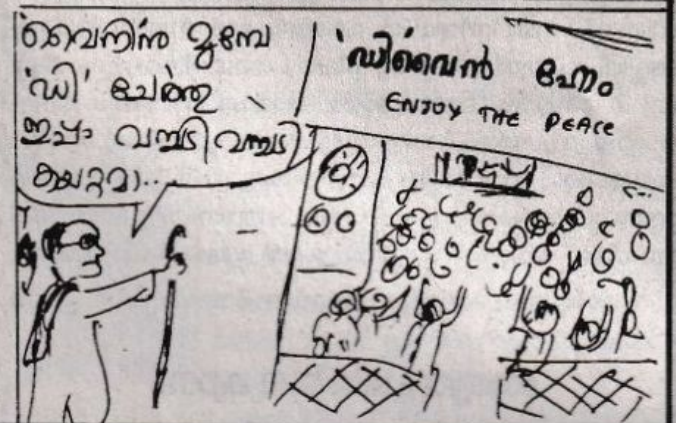 വൈനിന്ന മുമ്പേ
'ഡി' ചേർത്തു
ഇപ്പം വമ്പടി വമ്പട
കയറ്റമാ..
'ഡിവൈൻ ഹോം
ENJOY THE PEACE